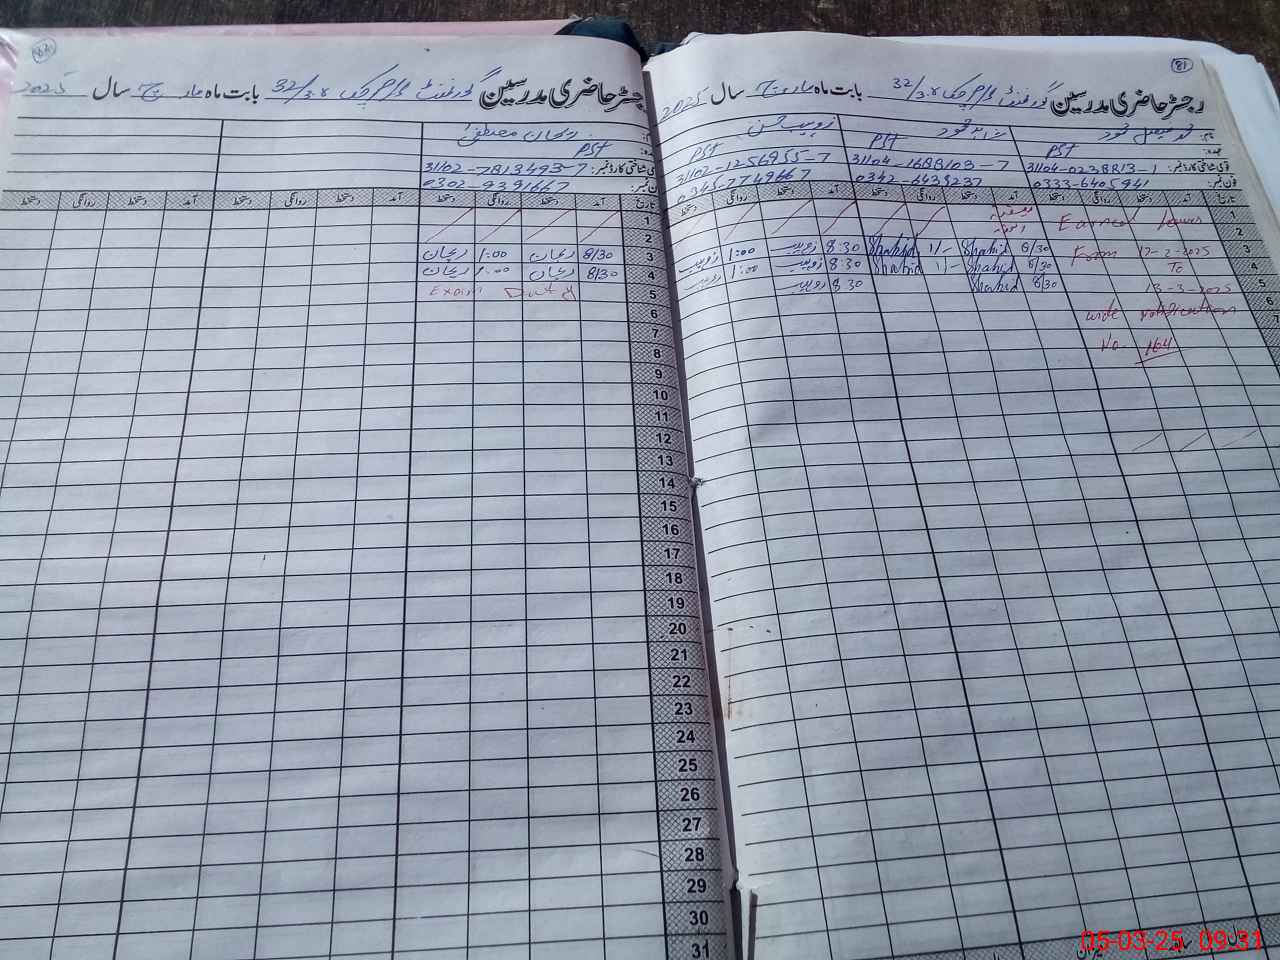 81
رجسٹر حاضری مدرسین گورنمنٹ پرائمری چک 32/3.R بابت ماہ مارچ سال 2025
نام: محمد فیصل محمود شاہد محمود زوہیب حسن
عہدہ: PST PST PST
قومی شناختی کارڈ نمبر: 31104-0238813-1 31104-1688103-7 31102-1256955-7
فون نمبر: 0333-6405941 0342-6439237 0345-7749667
تاریخ آمد دستخط روانگی دستخط آمد دستخط روانگی دستخط آمد دستخط روانگی دستخط
1 Earned leaves
2
3 From 12-2-2025 8/30 Shahid 1/- Shahid 8:30 زوہیب 1:00 زوہیب
4 To 8/30 Shahid 1/- Shahid 8:30 زوہیب 1:00 زوہیب
5 13-3-2025 8/30 Shahid 8:30 زوہیب
6 wide notification
7
No. 164
82
رجسٹر حاضری مدرسین گورنمنٹ پرائمری چک 32/3.R بابت ماہ مارچ سال 2025
ریحان مصطفیٰ
PST
قومی شناختی کارڈ نمبر: 31102-7813493-7
فون نمبر: 0302-9391667
تاریخ آمد دستخط روانگی دستخط آمد دستخط روانگی دستخط آمد دستخط روانگی دستخط
1
2
3 8/30 ریحان 1:00 ریحان
4 8/30 ریحان 1:00 ریحان
5 Exam Duty
6
7
8
9
10
11
12
13
14
15
16
17
18
19
20
21
22
23
24
25
26
27
28
29
30
31
05-03-25 09:31